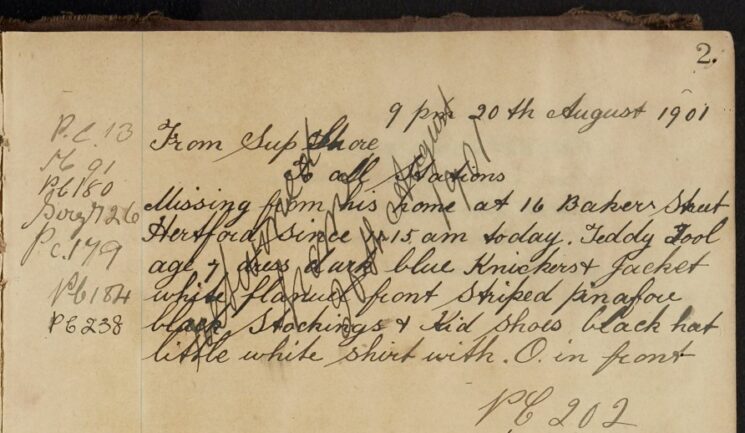 2.
9 pm 20th August 1901
P.C. 13
From Sup Shore
91
to all Stations
PC 180
Missing from his home at 16 Baker Street
Sergt 26
Hertford since 15 am today. Teddy Tool
Pc. 179
age 7 dress dark blue Knickers & Jacket
white flannel front Striped pinafore
PC 184
black Stockings & Kid Shoes black hat
PC 238
little white shirt with. O. in front
Returned
home
20th August
1901
PC 202